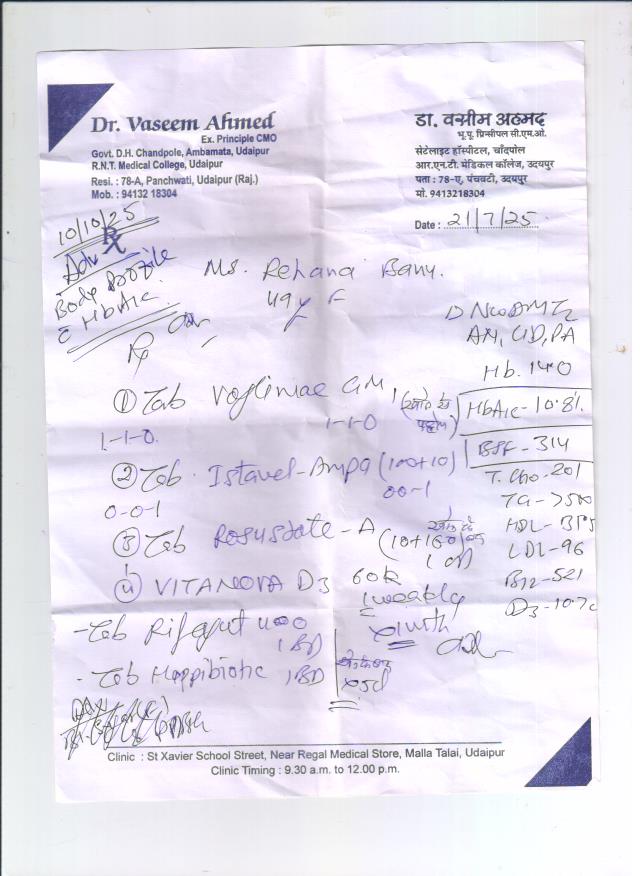 Dr. Vaseem Ahmed
Ex. Principle CMO
Govt. D.H. Chandpole, Ambamata, Udaipur
R.N.T. Medical College, Udaipur
Resi. : 78-A, Panchwati, Udaipur (Raj.)
Mob. : 94132 18304
डा. वसीम अहमद
भू.पू. प्रिन्सीपल सी.एम.ओ.
सेटेलाइट हॉस्पीटल, चाँदपोल
आर.एन.टी. मेडिकल कॉलेज, उदयपुर
पता : 78-ए, पंचवटी, उदयपुर
मो. 9413218304
Date : 21/7/25
10/10/25
Rx
Adv
Body Profile
c HbA1c.
Ms. Rehana Banu.
49 y F
Hb. 14.0
HbA1c - 10.8%
BSF - 314
T. Cho - 201
TG - >500
LDL - 96
B12 - 521
① Tab Voglimac GM 1
1-1-0
1-1-0.
② Tab. Istavel-Ampa (100+10)
00-1
0-0-1
③ Tab Rosustate-A
(10+160)
④ VITANOVA D3 60K
1 weekly
- Tab Rifagut 400
1 BD
- Tab Happibiotic 1 BD
x5d
Clinic : St Xavier School Street, Near Regal Medical Store, Malla Talai, Udaipur
Clinic Timing : 9.30 a.m. to 12.00 p.m.